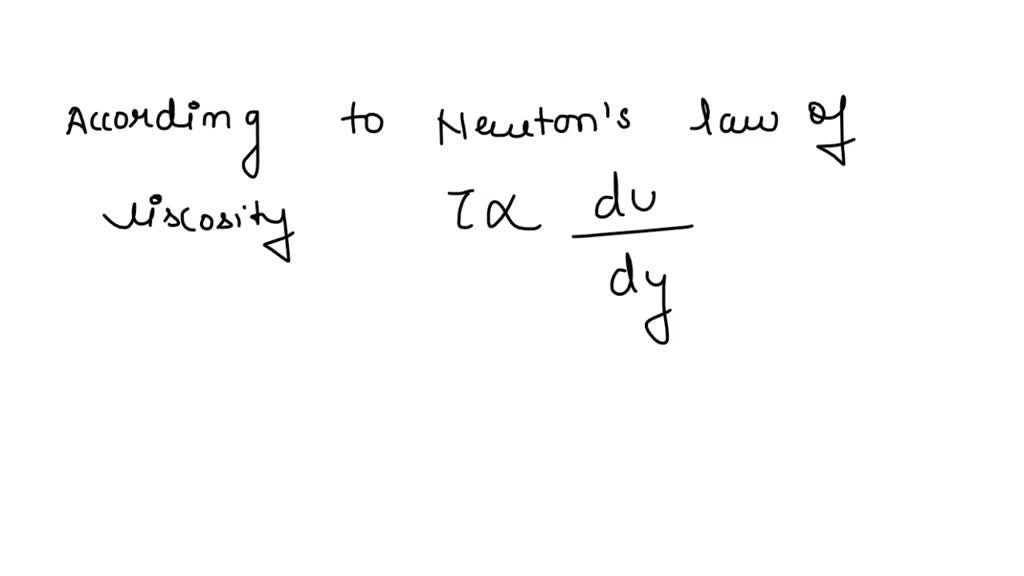 According to Newton's law of
viscosity τ α du
dy